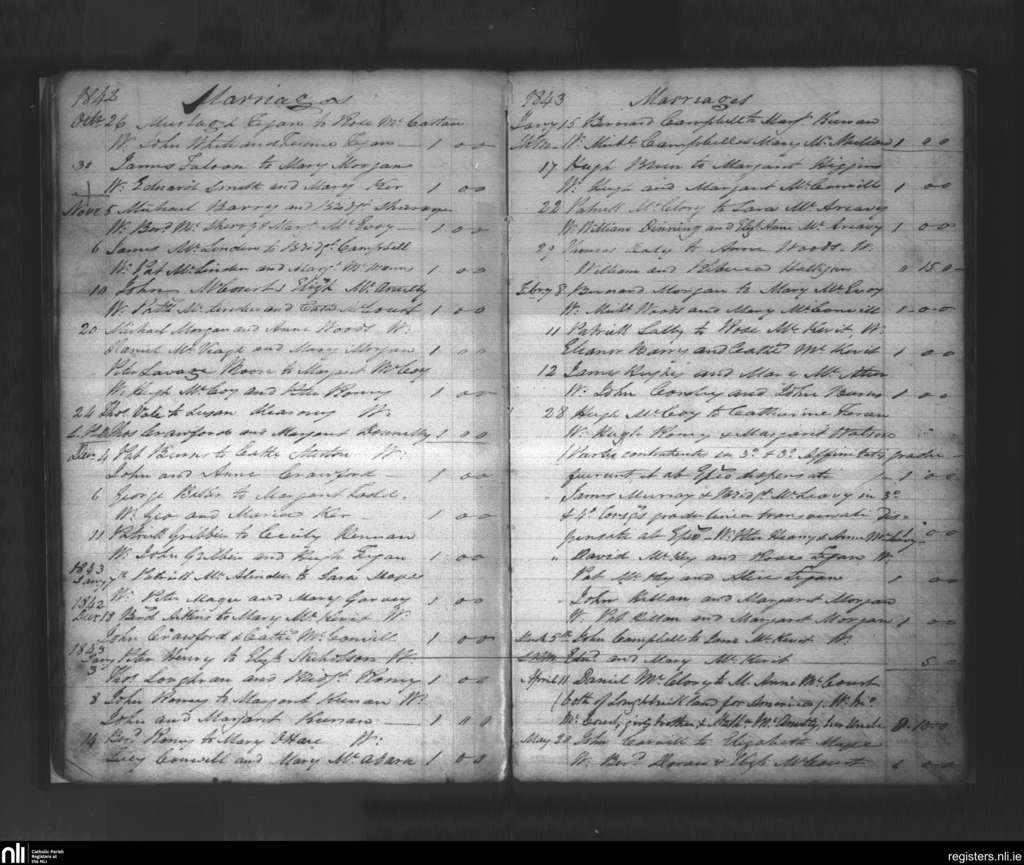 1842 Marriages
Octr 26 Fegan to Rose McCartan
W: John White and Fegan 1 00
30 James to Mary Morgan
W: Edward Smith and Mary Ker 1 00
Nover 5 Michael Barry and Bridgt
W: Bernd McSherry & Margt McEvoy 1 00
6 James McLinden to Bridgt Campbell
W: Pat McLinden and 1 00
10 John to Eligh
W: Patk McLinden and Cathe McCourt 1 00
20 Michael Morgan and Anne Woods W:
Daniel McVeagh and Mary Morgan 1 00
Peter Savage Moore to Margaret McEvoy
W: Hugh McEvoy and Peter Henry 1 00
24 Thos to Susan W:
Thos Crawford and Margaret Donnelly 1 00
Decr 4 Pat Burns to Cathe W:
John and Anne Crawford 1 00
6 George to Margaret Todd.
W: Geo and Maria Ker 1 00
11 Patrick Gribbin to Cecily Keenan
W: John Gribbin and Hugh Fegan 1 00
1843
Jany 7th Patrick McAlinden to Sara Magee
W: Peter Magee and Mary Garvey 1 00
1842
Decr 18 Bernd Aitkins to Mary McKevit W:
John Crawford & Cathe McConvill 1 00
1843
Jany 3 Peter Henry to Elizh Nicholson W:
Thos Loughran and Bridgt Henry 1 00
8 John Henry to Margaret Keenan W:
John and Margaret Keenan 1 00
14 Bernd Henry to Mary OHare W:
Lucy Convill and Mary McAtara 1 00
1843 Marriages
Jany 15 Bernard Campbell to Margt Keenan
W: Michl Campbell & Mary McMullan 1 00
17 Hugh to Margaret Higgins
W: Hugh and Margaret McConvill 1 00
22 Patrick McClory to Sara McAreavy
W: William Dinning and Elizh Anne McAreavy 1 00
29 Thomas Daly to Anne Woods W.
William and Rebecca Halligan 0 15 0
Febry 8 Bernard Morgan to Mary McEvoy
W: Michl Woods and Mary McConvill 1 00
11 Patrick Lally to Rose McKevit W:
Eleanor Barry and Cathe McKevit 1 00
12 James Hughes and Mary McAteer
W: John and John Burns 1 00
28 Hugh McEvoy to Catharine
W: Hugh Henry & Margaret Watson
(Partes contrahentes in 3o & 3o Affinitatis gradu
1 00
James Murray & Bridgt McLeavy in 3o
& 4o Consgs gradu linea transversali Dis-
pensate ab Epo W: Peter Heany & Anne 1 00
David McKey and Fegan W:
Pat McKey and Alice Fegan 1 00
John Killan and Margaret Morgan
W. Pat Killan and Margaret Morgan 1 00
March 5th John Campbell to Jane McKevit W:
Edwd and Mary McKevit 5 0
April 11 Daniel McClory to M. Anne McCourt
(both of Loughbrickland for America) W: Wm
McCourt, girl's brother & McNeilly, her Uncle 0 10 0
May 20 John Convill to Elizabeth Magee
W: Bernd Doran & Elizh McCourt 00
nli
Catholic Parish
Registers at
the NLI
registers.nli.ie